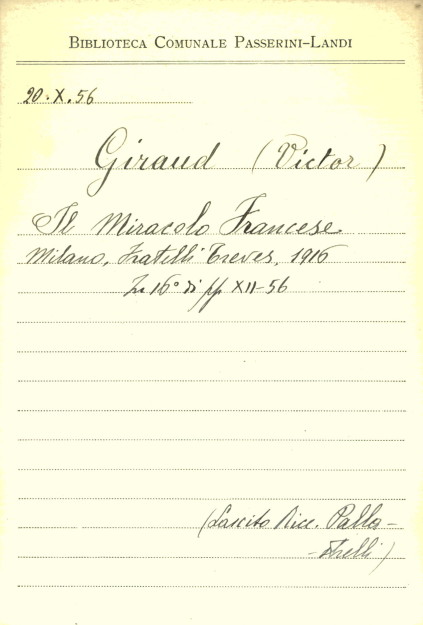 BIBLIOTECA COMUNALE PASSERINI-LANDI
20.X.56
Giraud (Victor)
Il Miracolo Francese
Milano, Fratelli Treves, 1916
In 16° di pp XII-56
(Lascito Ricc. Palla-
-strelli)